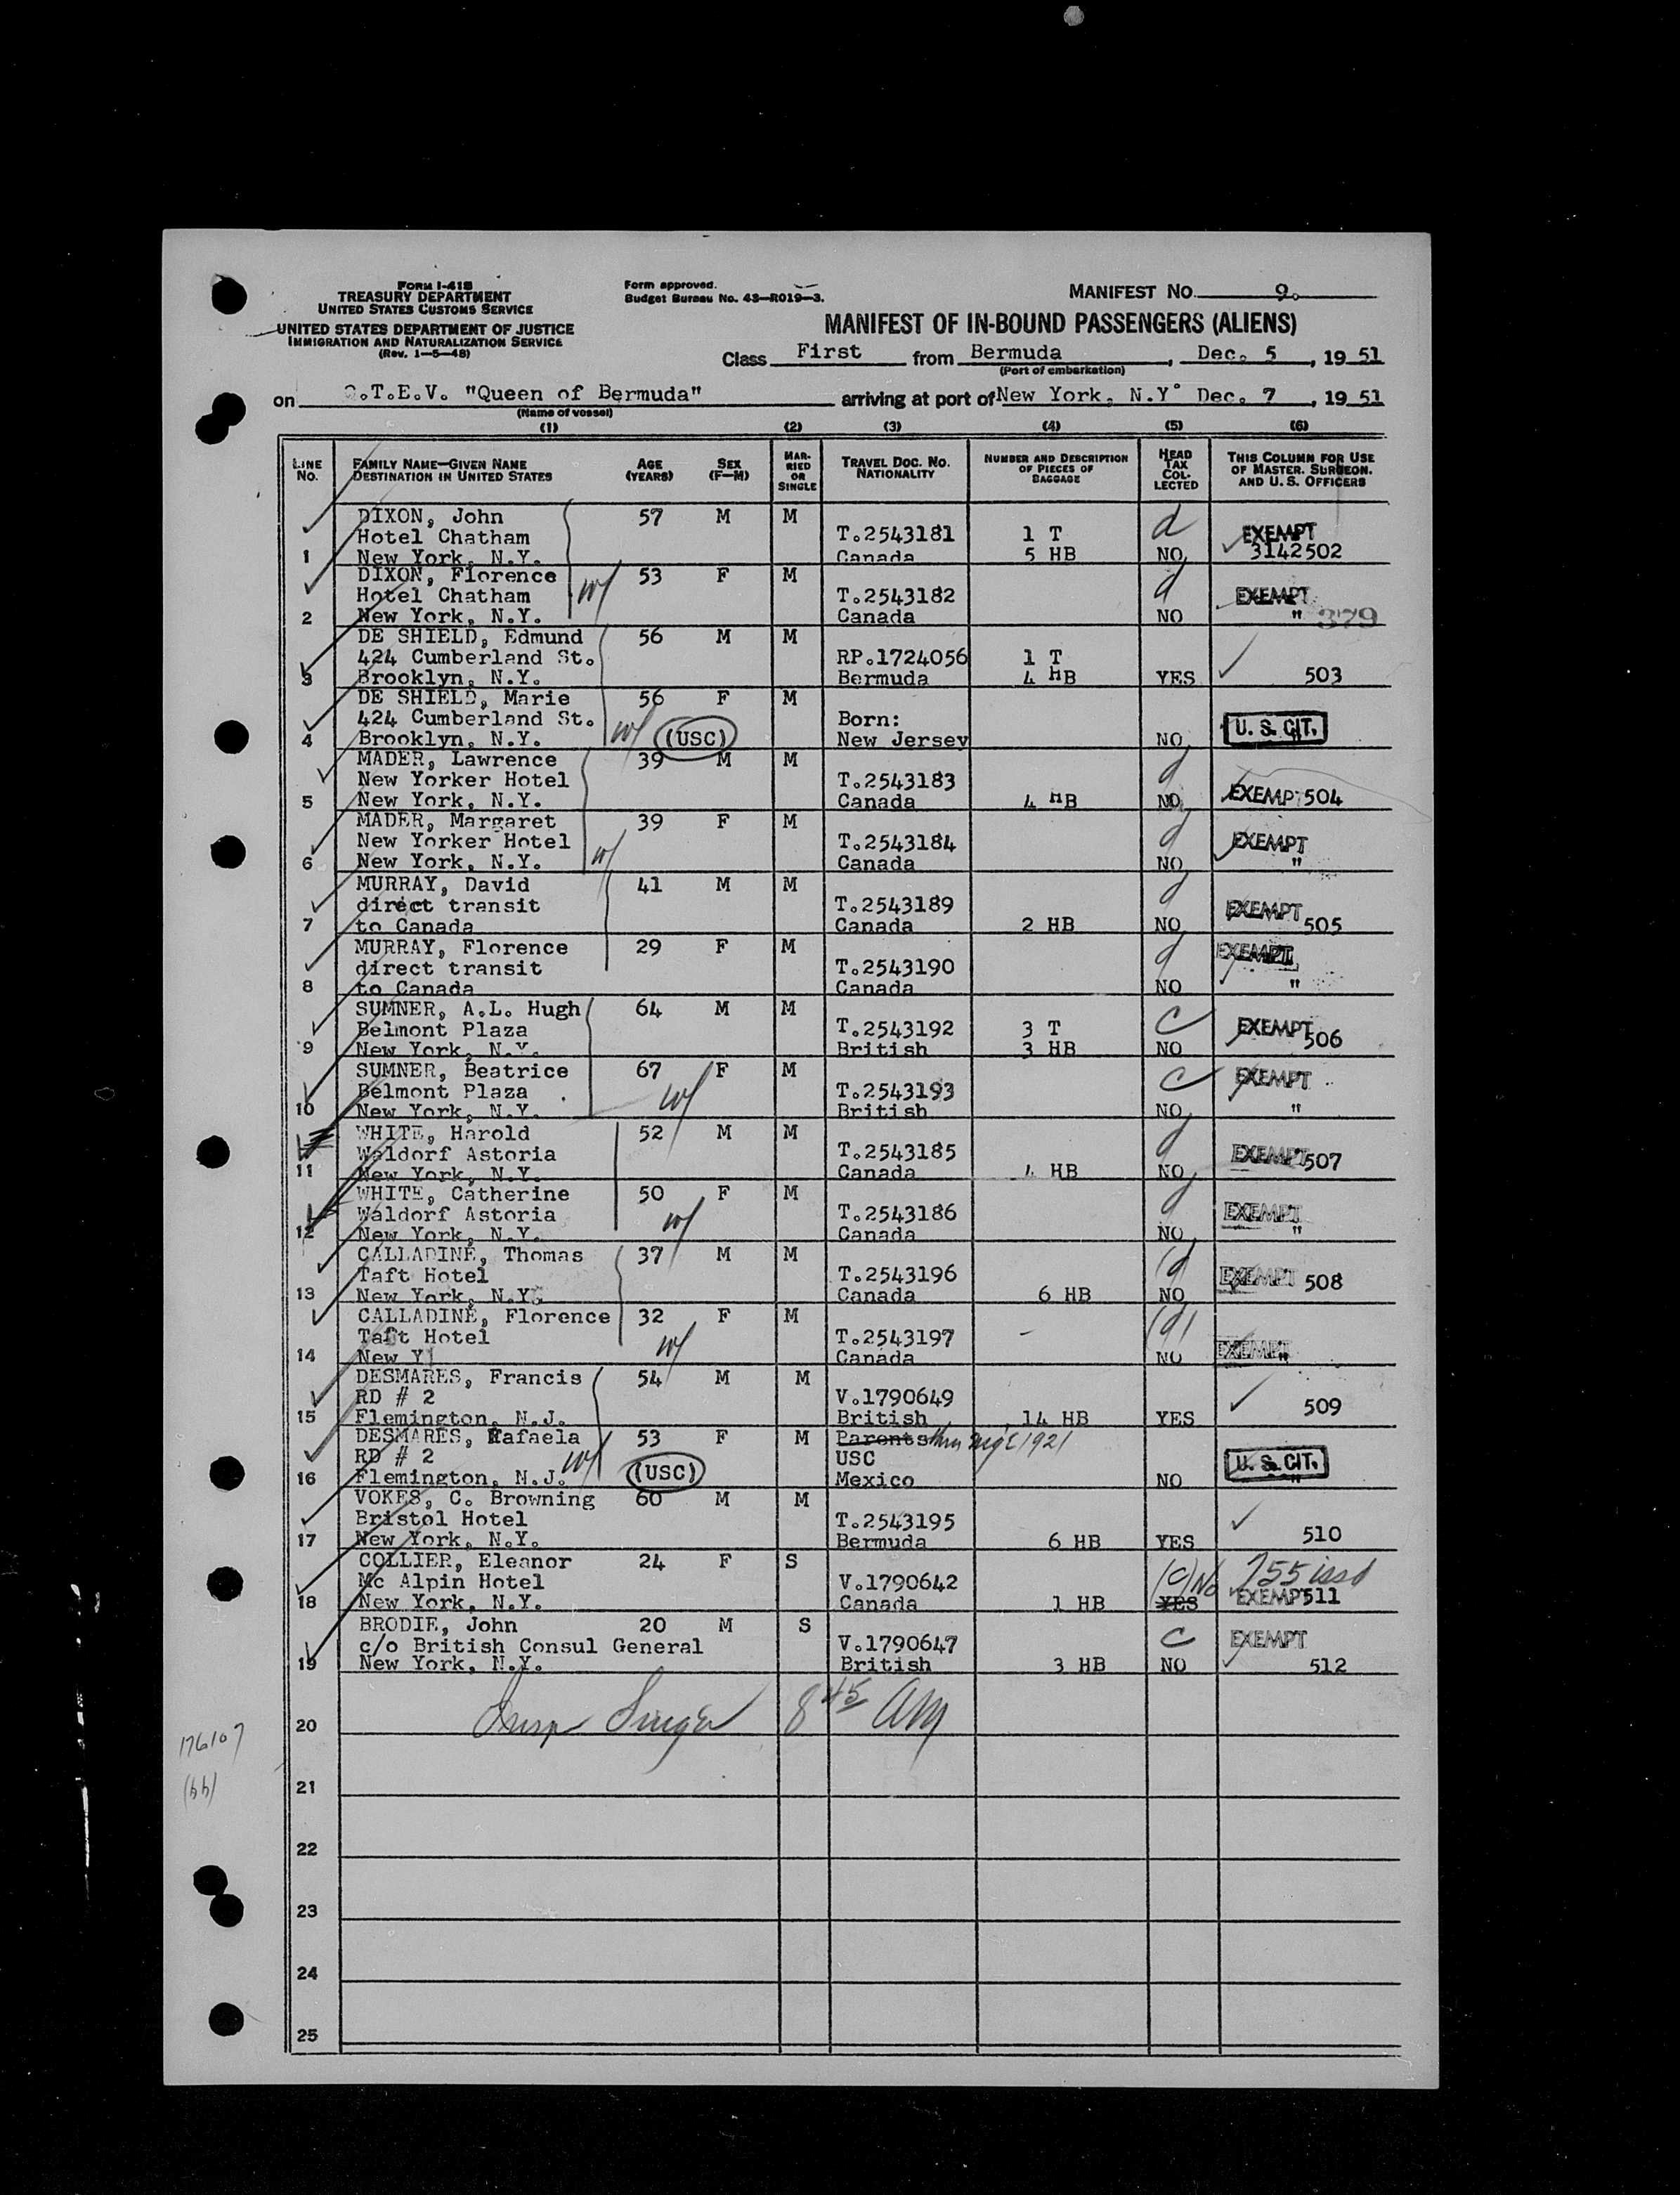 FORM I-418
TREASURY DEPARTMENT
UNITED STATES CUSTOMS SERVICE
UNITED STATES DEPARTMENT OF JUSTICE
IMMIGRATION AND NATURALIZATION SERVICE
(Rev. 1-5-48)
Form approved.
Budget Bureau No. 43-R019-3.
MANIFEST NO. 9.
MANIFEST OF IN-BOUND PASSENGERS (ALIENS)
Class First from Bermuda, Dec. 5, 1951
(Port of embarkation)
on .T.E.V. "Queen of Bermuda" arriving at port of New York, N.Y. Dec. 7, 1951
(Name of vessel)
(1) (2) (3) (4) (5) (6)
LINE No. FAMILY NAME—GIVEN NAME DESTINATION IN UNITED STATES AGE (YEARS) SEX (F—M) MARRIED OR SINGLE TRAVEL DOC. NO. NATIONALITY NUMBER AND DESCRIPTION OF PIECES OF BAGGAGE HEAD TAX COLLECTED THIS COLUMN FOR USE OF MASTER, SURGEON, AND U. S. OFFICERS
DIXON, John 57 M M d
Hotel Chatham T.2543181 1 T EXEMPT
1 New York, N.Y. Canada 5 HB NO 3142502
DIXON, Florence 53 F M d
Hotel Chatham w/ T.2543182 EXEMPT
2 New York, N.Y. Canada NO " 379
DE SHIELD, Edmund 56 M M
424 Cumberland St. RP.1724056 1 T
3 Brooklyn, N.Y. Bermuda 4 HB YES 503
DE SHIELD, Marie 56 F M
424 Cumberland St. w/ Born: U. S. CIT.
4 Brooklyn, N.Y. (USC) New Jersey NO
MADER, Lawrence 39 M M d
New Yorker Hotel T.2543183
5 New York, N.Y. Canada 4 HB NO EXEMPT 504
MADER, Margaret 39 F M d
New Yorker Hotel T.2543184 EXEMPT
6 New York, N.Y. w/ Canada NO "
MURRAY, David 41 M M d
direct transit T.2543189 EXEMPT
7 to Canada Canada 2 HB NO 505
MURRAY, Florence 29 F M d EXEMPT
direct transit T.2543190
8 to Canada Canada NO "
SUMNER, A.L. Hugh 64 M M C
Belmont Plaza T.2543192 3 T EXEMPT
9 New York, N.Y. British 3 HB NO 506
SUMNER, Beatrice 67 F M C EXEMPT
Belmont Plaza w/ T.2543193
10 New York, N.Y. British NO "
WHITE, Harold 52 M M d
Waldorf Astoria T.2543185 EXEMPT 507
11 New York, N.Y. Canada 4 HB NO
WHITE, Catherine 50 F M d
Waldorf Astoria w/ T.2543186 EXEMPT
12 New York, N.Y. Canada NO "
CALLADINE, Thomas 37 M M (d
Taft Hotel T.2543196 EXEMPT 508
13 New York, N.Y. Canada 6 HB NO
CALLADINE, Florence 32 F M (d)
Taft Hotel w/ T.2543197 -
14 New Y Canada NO EXEMPT "
DESMARES, Francis 54 M M
RD # 2 V.1790649
15 Flemington, N.J. British 14 HB YES 509
DESMARES, Rafaela 53 F M Parents thru 1921
RD # 2 w/ USC U. S. CIT.
16 Flemington, N.J. (USC) Mexico NO
VOKES, C. Browning 60 M M
Bristol Hotel T.2543195
17 New York, N.Y. Bermuda 6 HB YES 510
COLLIER, Eleanor 24 F S
Mc Alpin Hotel V.1790642 (c) No 755 issd
18 New York, N.Y. Canada 1 HB YES EXEMPT 511
BRODIE, John 20 M S C EXEMPT
c/o British Consul General V.1790647
19 New York, N.Y. British 3 HB NO 512
20 Insp Singer 8 45 AM
176107
21
(bb)
22
23
24
25